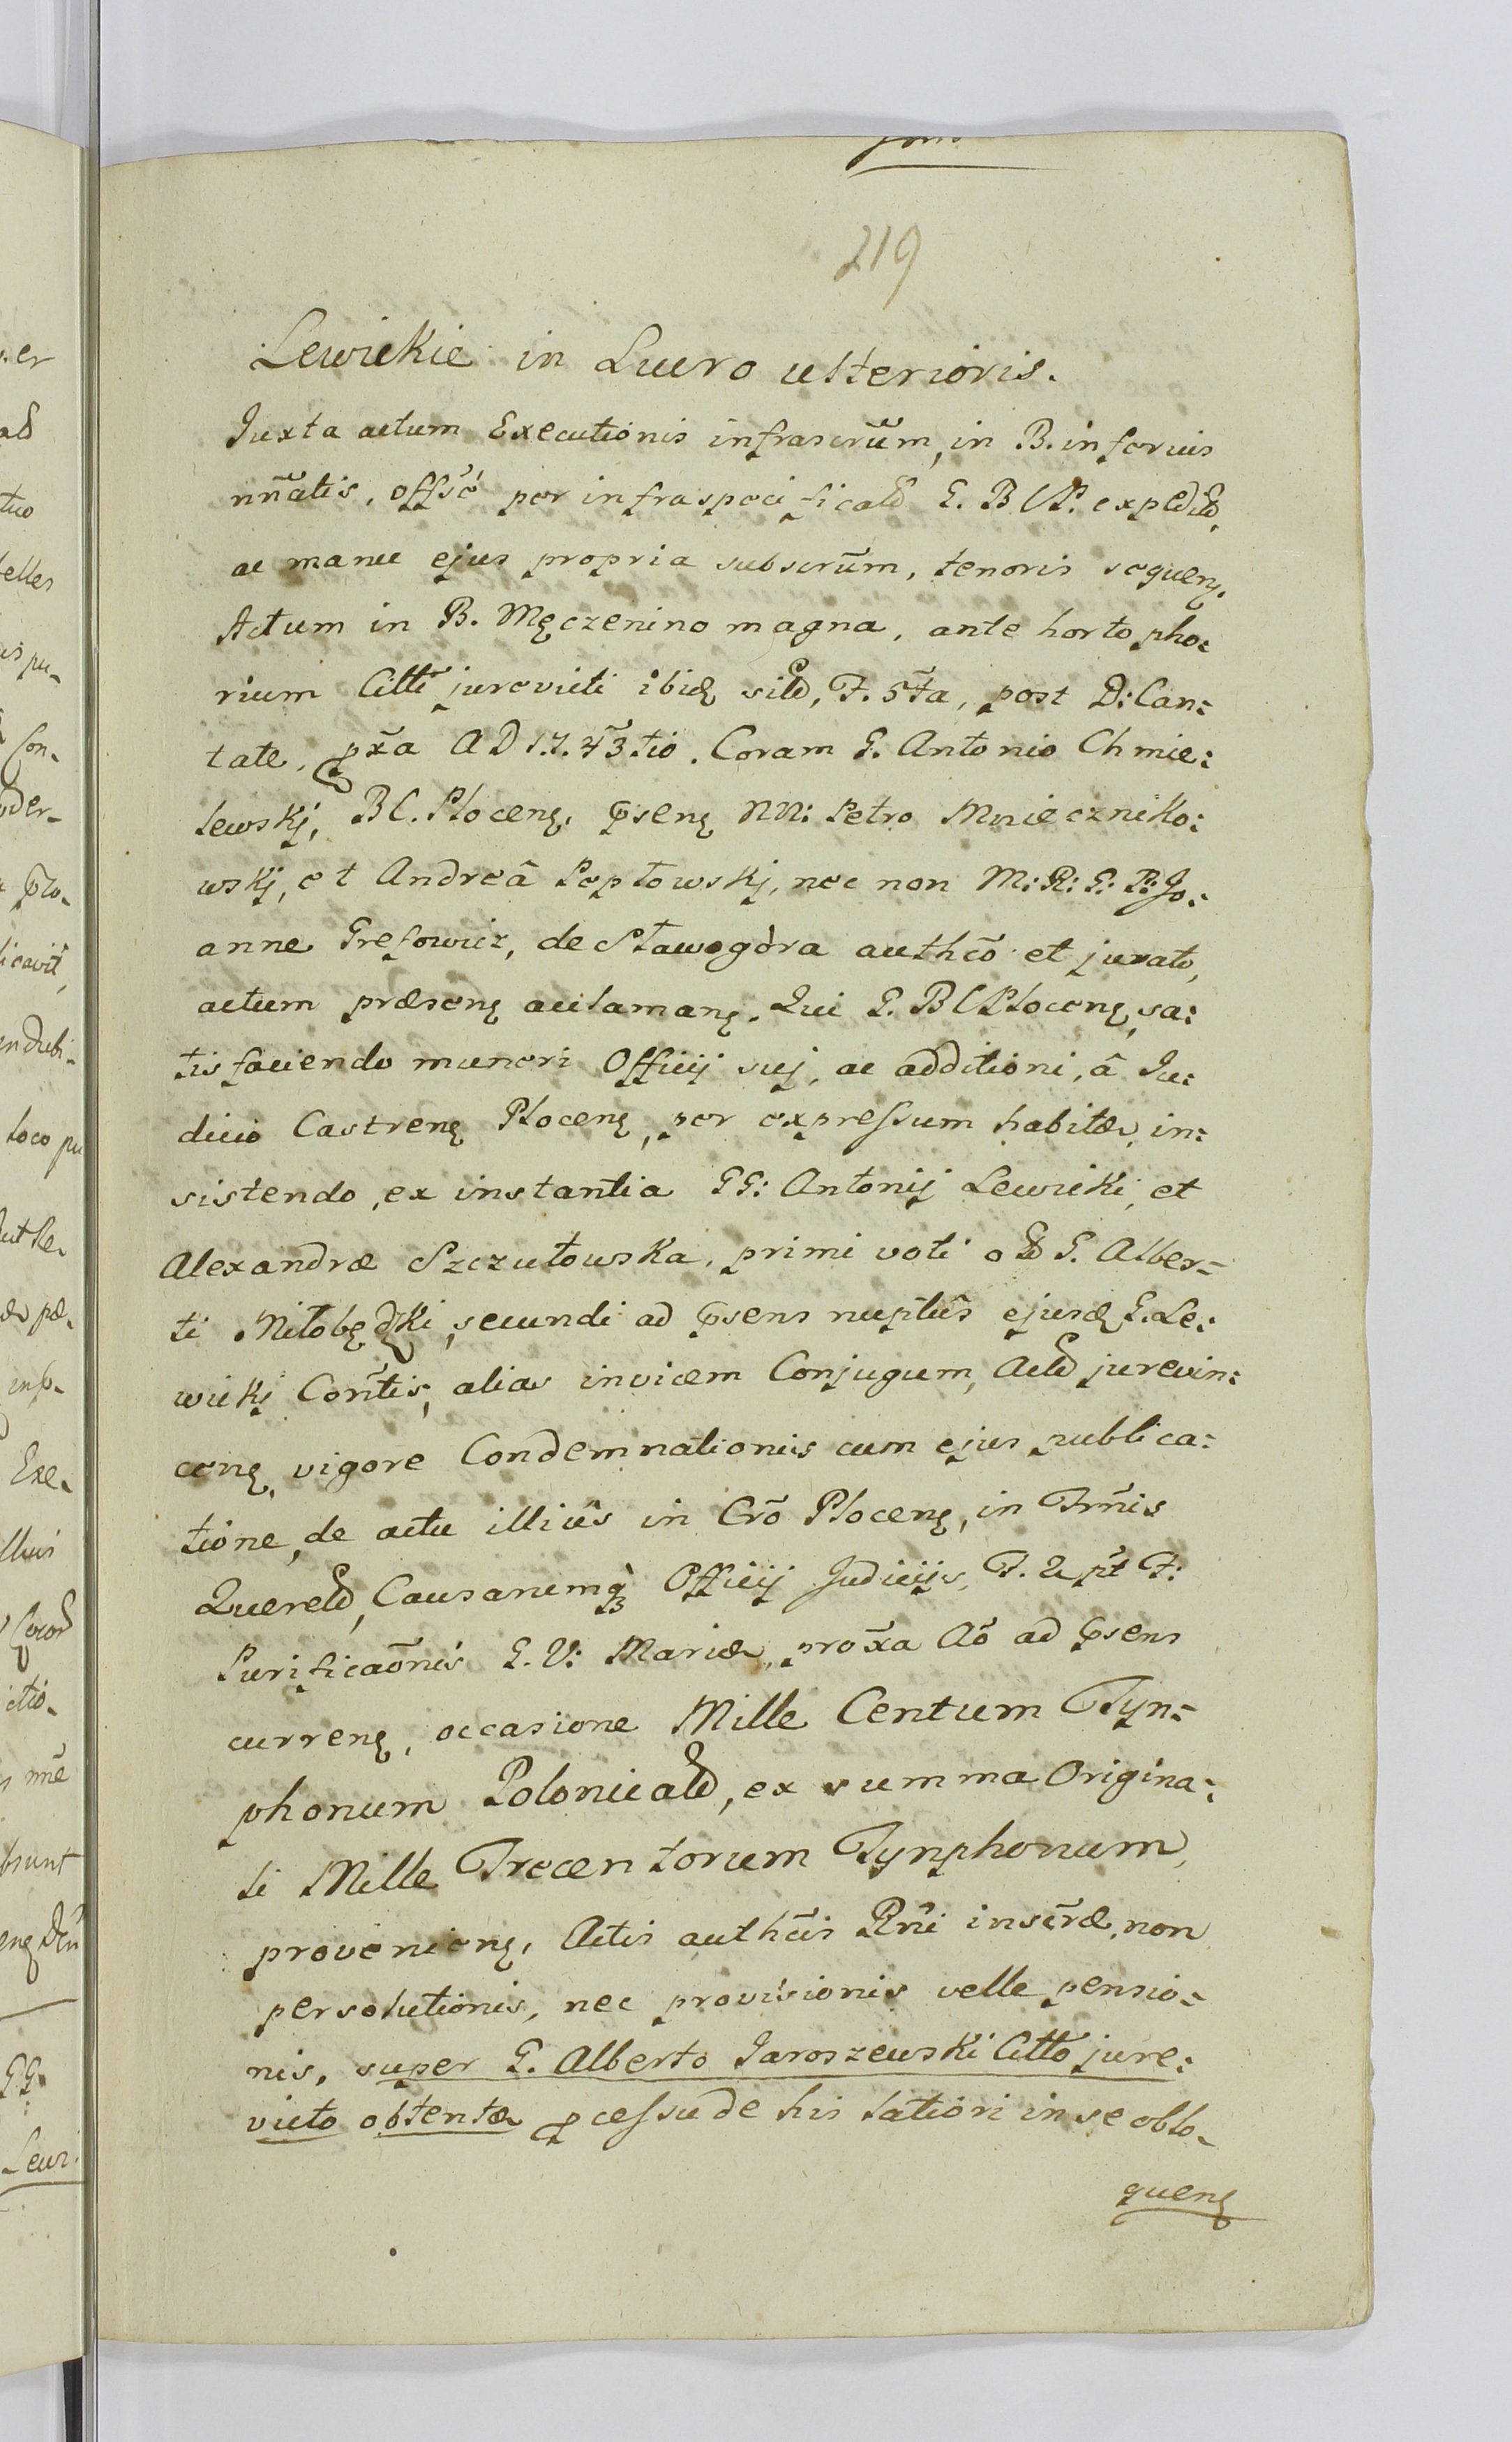 219
Lewickie in Lucro ulterioris.
Juxta actum Executionis infrascrũm, in B. inferius
nñatis, offsẽ per infraspecificatũ G. B C P. expeditũ,
ac manu ejus propria subscrũm, tenoris sequenȝ.
Actum in B. Męczenino magna, ante hortopho:
rium Citti jurevicti ibidȝ sitũ, F. 5ta, post D: Can:
tate, pxa A D 1743tio. Coram G. Antonio Chmie:
lewskj, B C. Plocenȝ, psenȝ NN: Petro Mnieczniko:
wskj, et Andreâ Peptowskj, nec non M: R: G: P: Jo:
anne Grefowicz, de Sławogòra authcõ et jurato,
actum præsenȝ acclamanȝ. Qui G. B C Plocenȝ, sa:
tisfaciendo muneri Officij suj, ac additioni, â Ju:
dicio Castrenȝ Plocenȝ, per expressum habitæ, in:
sistendo, ex instantia GG: Antonij Lewicki, et
Alexandræ Szczutowska, primi voti olȝ G. Alber:
ti Niłobędzki, secundi ad psens nuptûs ejusdȝ G. Le:
wickj Cõrtis, alias invicem Conjugum, Actȝ jurevin:
cenȝ, vigore Condemnationis cum ejus publica:
tione, de actu illiûs in Crõ Plocenȝ, in Trmis
Querelȝ, Causarumqȝ Officij Judicijs, F. 2 pt F:
Purificaõnis G. V: Mariæ, proxa Aõ ad psens
currenȝ, occasione Mille Centum Tyn:
phonum Polonicalȝ, ex summa Origina:
li Mille Trecentorum Tynphonum,
provenienȝ, Actis authcis Rñi inscræ, non
persolutionis, nec provisionis velle pensio:
nis, super G. Alberto Jaroszewski Citto jure:
victo obtentæ pcessu de his latiori in se oblo:
quenȝ